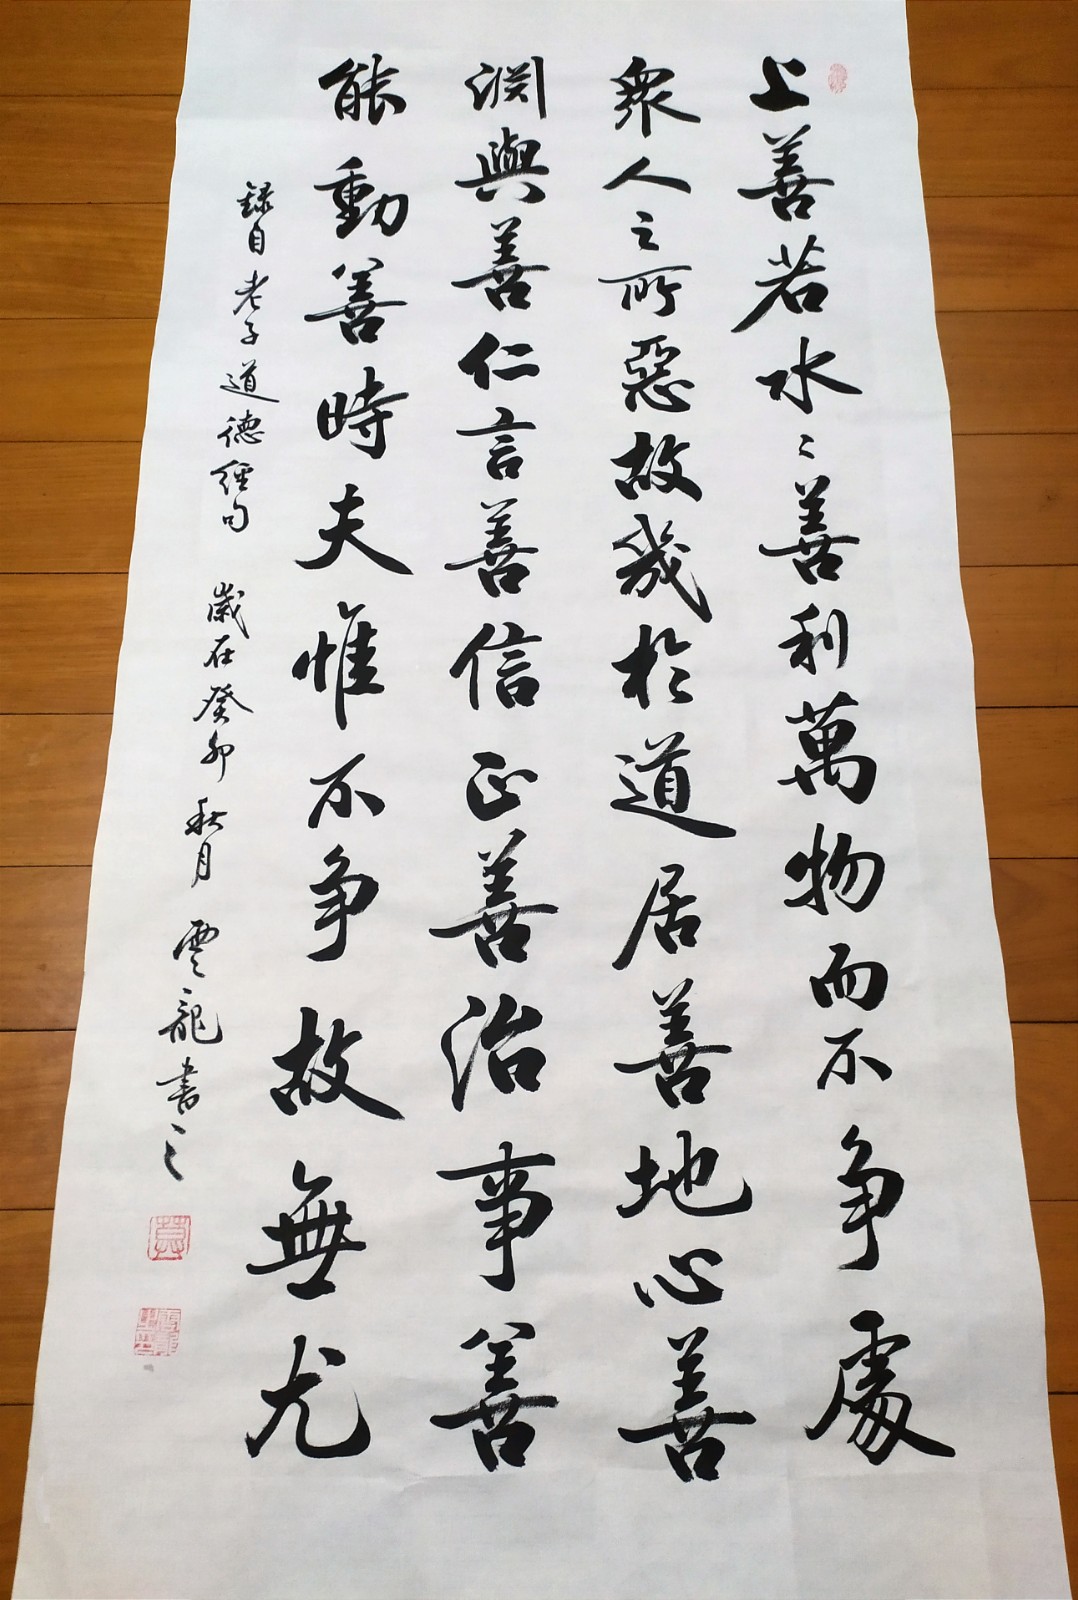 上善若水〻善利萬物而不争處
衆人之所惡故幾於道居善地心善
淵與善仁言善信正善治事善
能動善時夫惟不争故無尤
録自老子道德經句 歲在癸卯秋月 雲龍書之